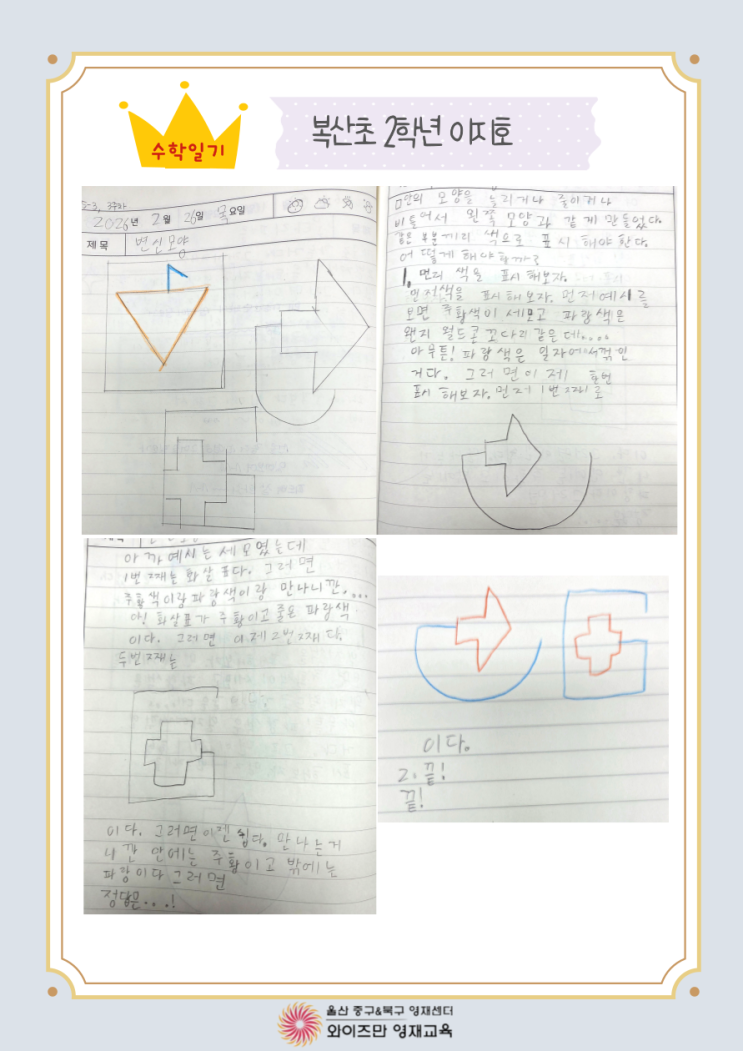 수학일기
복산초 2학년 이지호
2-3, 3주차
2026년 2월 26일 목요일
제목 변신모양
ㅁ안의 모양을 늘리거나 줄이거나
비틀어서 왼쪽 모양과 같게 만들었다.
같은 부분끼리 색으로 표시 해야 한다.
어떻게 해야 할까?
1. 먼저 색을 표시 해보자.
먼저 색을 표시 해보자. 먼저 예시를
보면 주황색이 세모고 파랑색은
왠지 월드콘 꼬다리 같은데....
아무튼! 파랑색은 일자에서 꺾인
거다. 그러면 이제 한번
표시 해보자. 먼저 1번 째로
아까 예시는 세모였는데
1번 째는 화살표다. 그러면
주황색이랑 파랑색이랑 만나니깐....
아! 화살표가 주황이고 줄은 파랑색
이다. 그러면 이제 2번 째다.
두번 째는
이다. 그러면 이젠 쉽다. 만나는 거
니깐 안에는 주황이고 밖에는
파랑이다 그러면
정답은...!
이다.
2. 끝!
끝!
울산 중구&북구 영재센터
와이즈만 영재교육